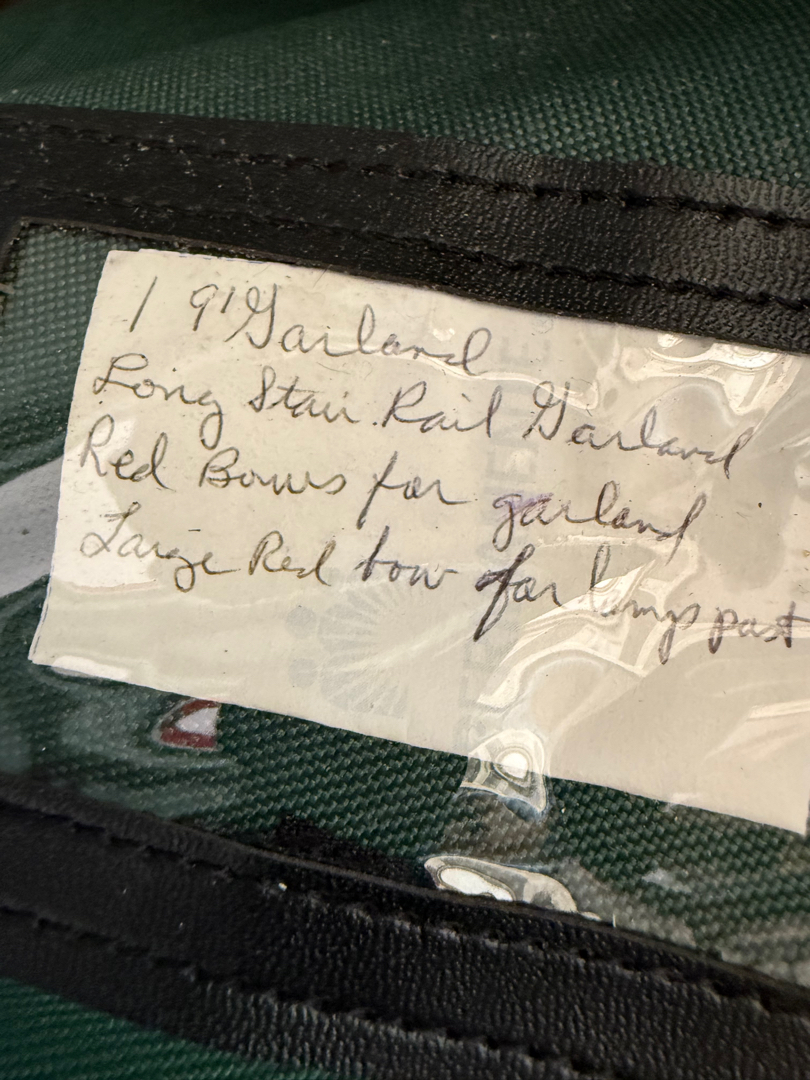 1 9' Garland
Long Stair Rail Garland
Red Bows for garland
Large Red bow for lamp post